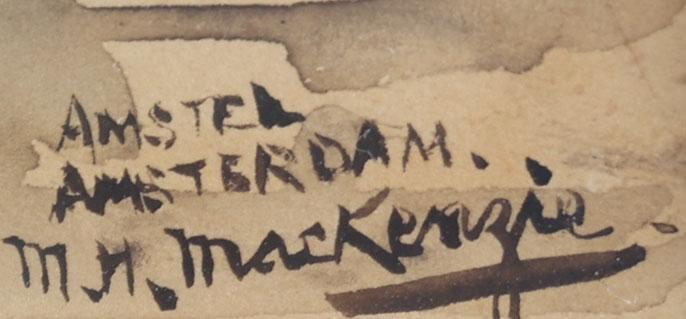 AMSTEL
AMSTERDAM.
M.H. MacKenzie.